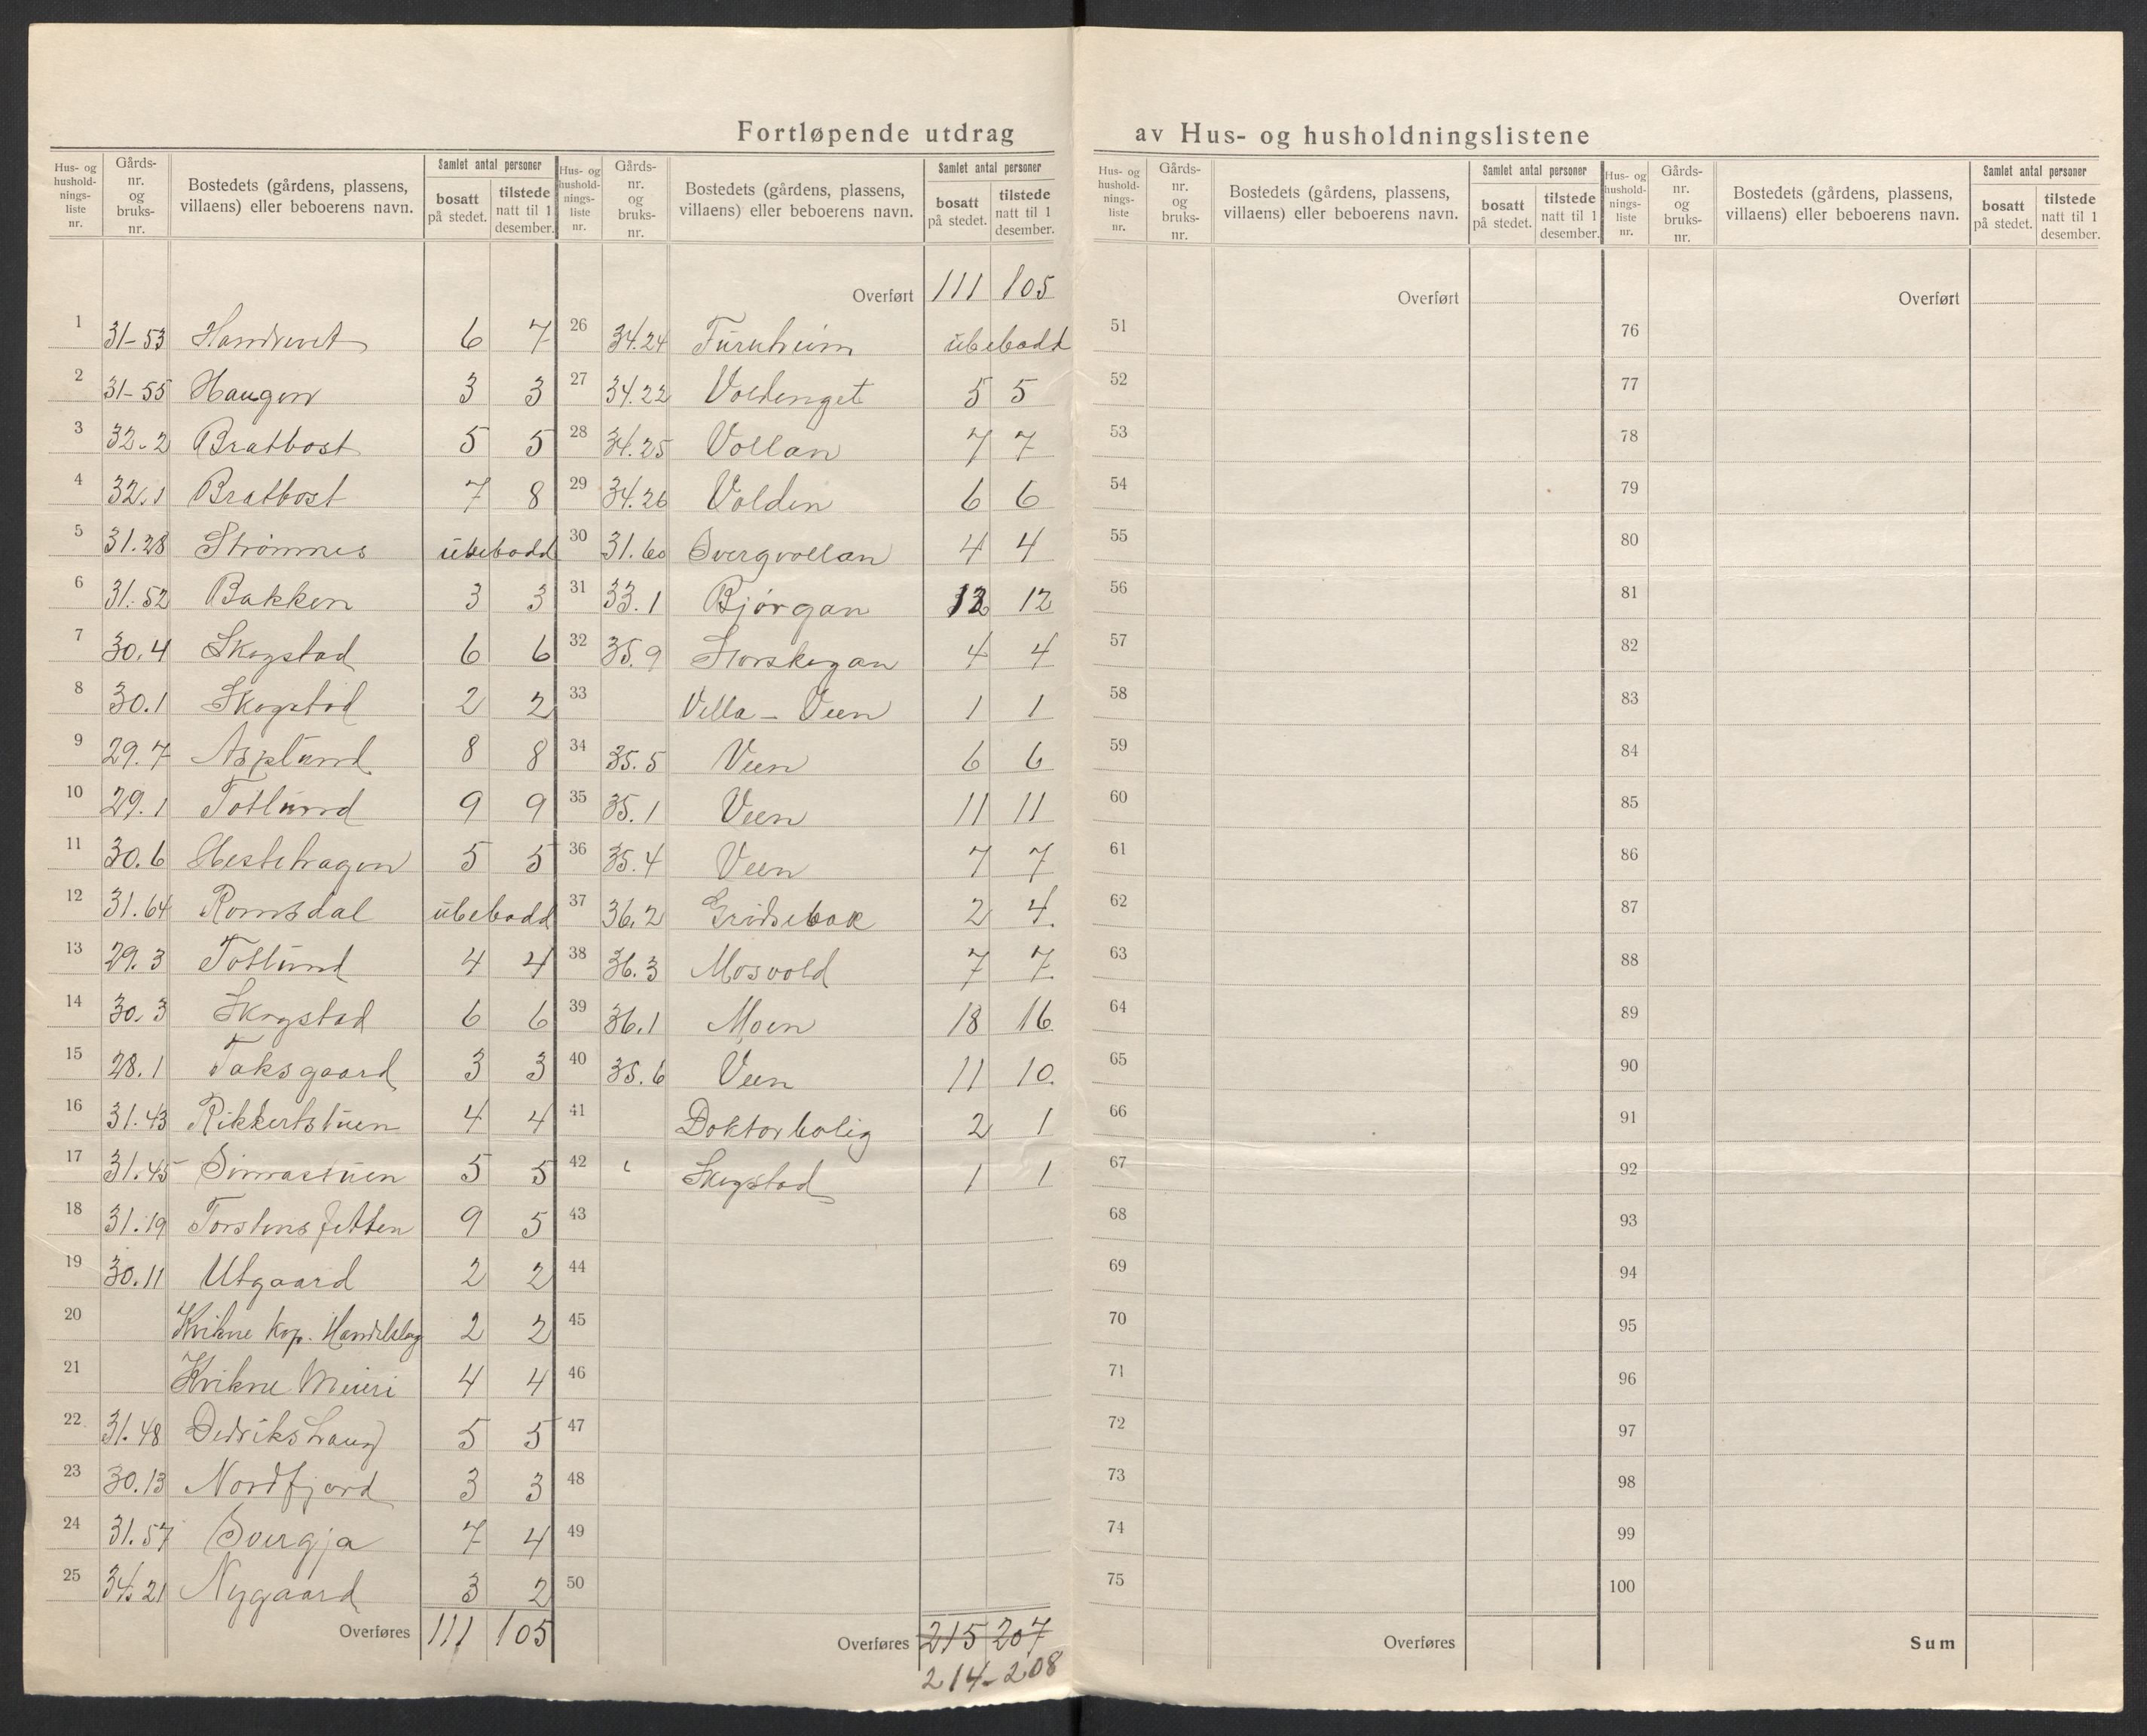 Fortløpende utdrag av Hus- og husholdningslistene
Hus- og hushold-nings-liste nr. | Gårds-nr. og bruks-nr. | Bostedets (gårdens, plassens, villaens) eller beboerens navn. | Samlet antal personer | bosatt på stedet. | tilstede natt til 1 desember.
1 31-53 Handveret 6 7
2 31-55 Haugen 3 3
3 32-2 Bratbost 5 5
4 32.1 Bratbost 7 8
5 31.28 Strømnes übebodd
6 31.52 Bakken 3 3
7 30.4 Skogstad 6 6
8 30.1 Skogstad 2 2
9 29.7 Asplund 8 8
10 29.1 Totlund 9 9
11 30.6 Hestehagen 5 5
12 31.64 Romsdal übebodd
13 29.3 Totlund 4 4
14 30.3 Skogstad 6 6
15 28.1 Taksgaard 3 3
16 31.43 Rikkertstuen 4 4
17 31.45 Simastuen 5 5
18 31.19 Torstensfetten 9 5
19 30.11 Utgaard 2 2
20 Kvikne Kop. Handelslag 2 2
21 Kvikne Meieri 4 4
22 31.48 Dedrikshaug 5 5
23 30.13 Nordfjord 3 3
24 31.57 Svergja 7 4
25 34.21 Nygaard 3 2
Overføres 111 105
Hus- og hushold-nings-liste nr. | Gårds-nr. og bruks-nr. | Bostedets (gårdens, plassens, villaens) eller beboerens navn. | Samlet antal personer | bosatt på stedet. | tilstede natt til 1 desember.
Overført 111 105
26 34.24 Furuheim übebodd
27 34.22 Voldenget 5 5
28 34.25 Vollan 7 7
29 34.26 Volden 6 6
30 31.60 Svergvollan 4 4
31 33.1 Bjørgan 12 12
32 35.9 Storskogan 4 4
33 Villa - Veen 1 1
34 35.5 Veen 6 6
35 35.1 Veen 11 11
36 35.4 Veen 7 7
37 36.2 Grødsebak 2 4.
38 36.3 Mosvold 7 7.
39 36.1 Moen 18 16
40 35.6 Veen 11 10.
41 Doktorbolig 2 1
42 Skogstad 1 1
43
44
45
46
47
48
49
50
Overføres 215 207
214-208
Hus- og hushold-nings-liste nr. | Gårds-nr. og bruks-nr. | Bostedets (gårdens, plassens, villaens) eller beboerens navn. | Samlet antal personer | bosatt på stedet. | tilstede natt til 1 desember.
Overført
51
52
53
54
55
56
57
58
59
60
61
62
63
64
65
66
67
68
69
70
71
72
73
74
75
Overføres
Hus- og hushold-nings-liste nr. | Gårds-nr. og bruks-nr. | Bostedets (gårdens, plassens, villaens) eller beboerens navn. | Samlet antal personer | bosatt på stedet. | tilstede natt til 1 desember.
Overført
76
77
78
79
80
81
82
83
84
85
86
87
88
89
90
91
92
93
94
95
96
97
98
99
100
Sum